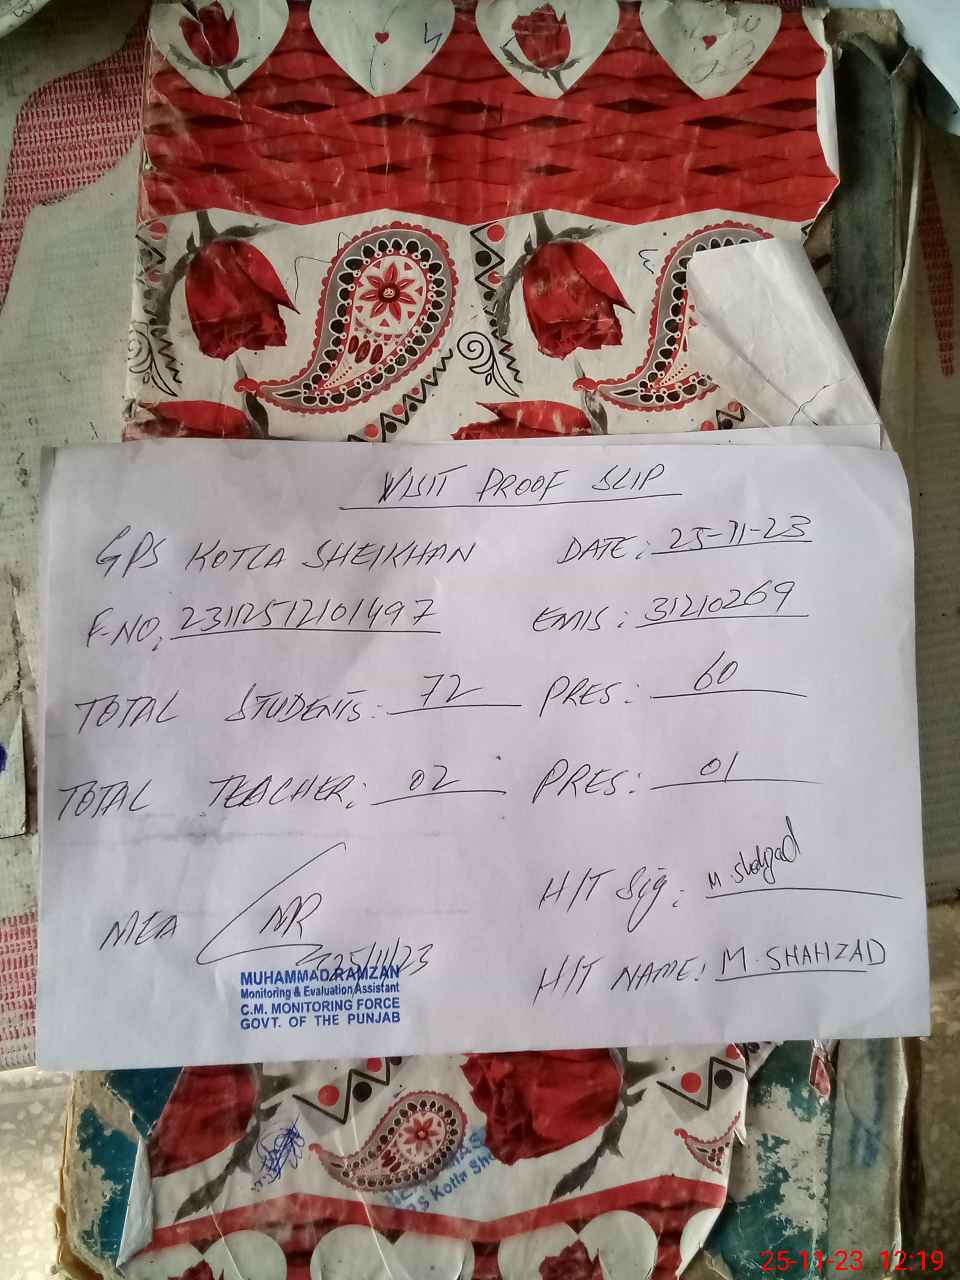 VISIT PROOF SLIP
GPS KOTLA SHEIKHAN DATE: 25-11-23
F-NO: 23112512101497 EMIS: 31210269
TOTAL STUDENTS: 72 PRES: 60
TOTAL TEACHER: 02 PRES: 01
H/T Sig: M. Shahzad
MEA MR
25/11/23
H/T NAME: M. SHAHZAD
MUHAMMAD RAMZAN
Monitoring & Evaluation Assistant
C.M. MONITORING FORCE
GOVT. OF THE PUNJAB
Kotla
25-11-23 12:19